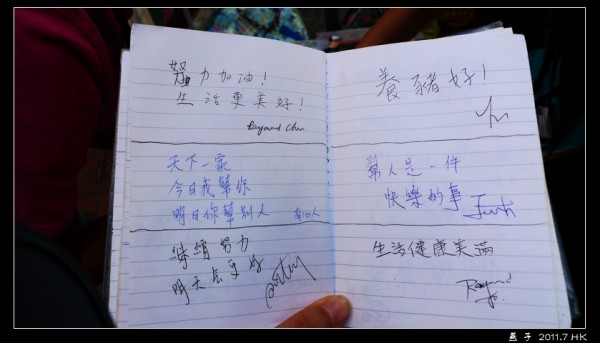 努力加油！
生活更美好！
Raymond Chan
天下一家
今日我幫你
明日你幫別人 有心人
持續努力
明天
養豬好！
幫人是一件
快樂的事
生活健康美滿
Raymond
燕子 2011.7 HK